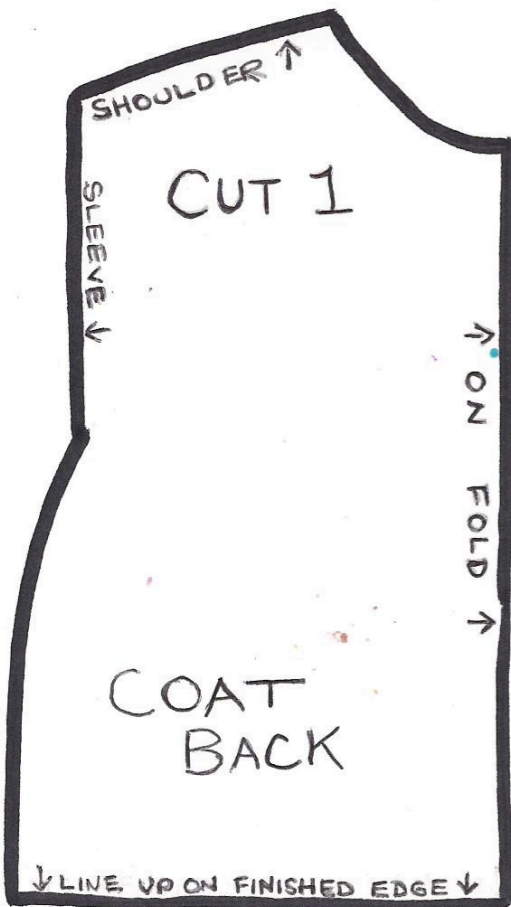 SHOULDER ↑
CUT 1
SLEEVE ↓
↑ ON FOLD ↑
COAT
BACK
↓ LINE UP ON FINISHED EDGE ↓